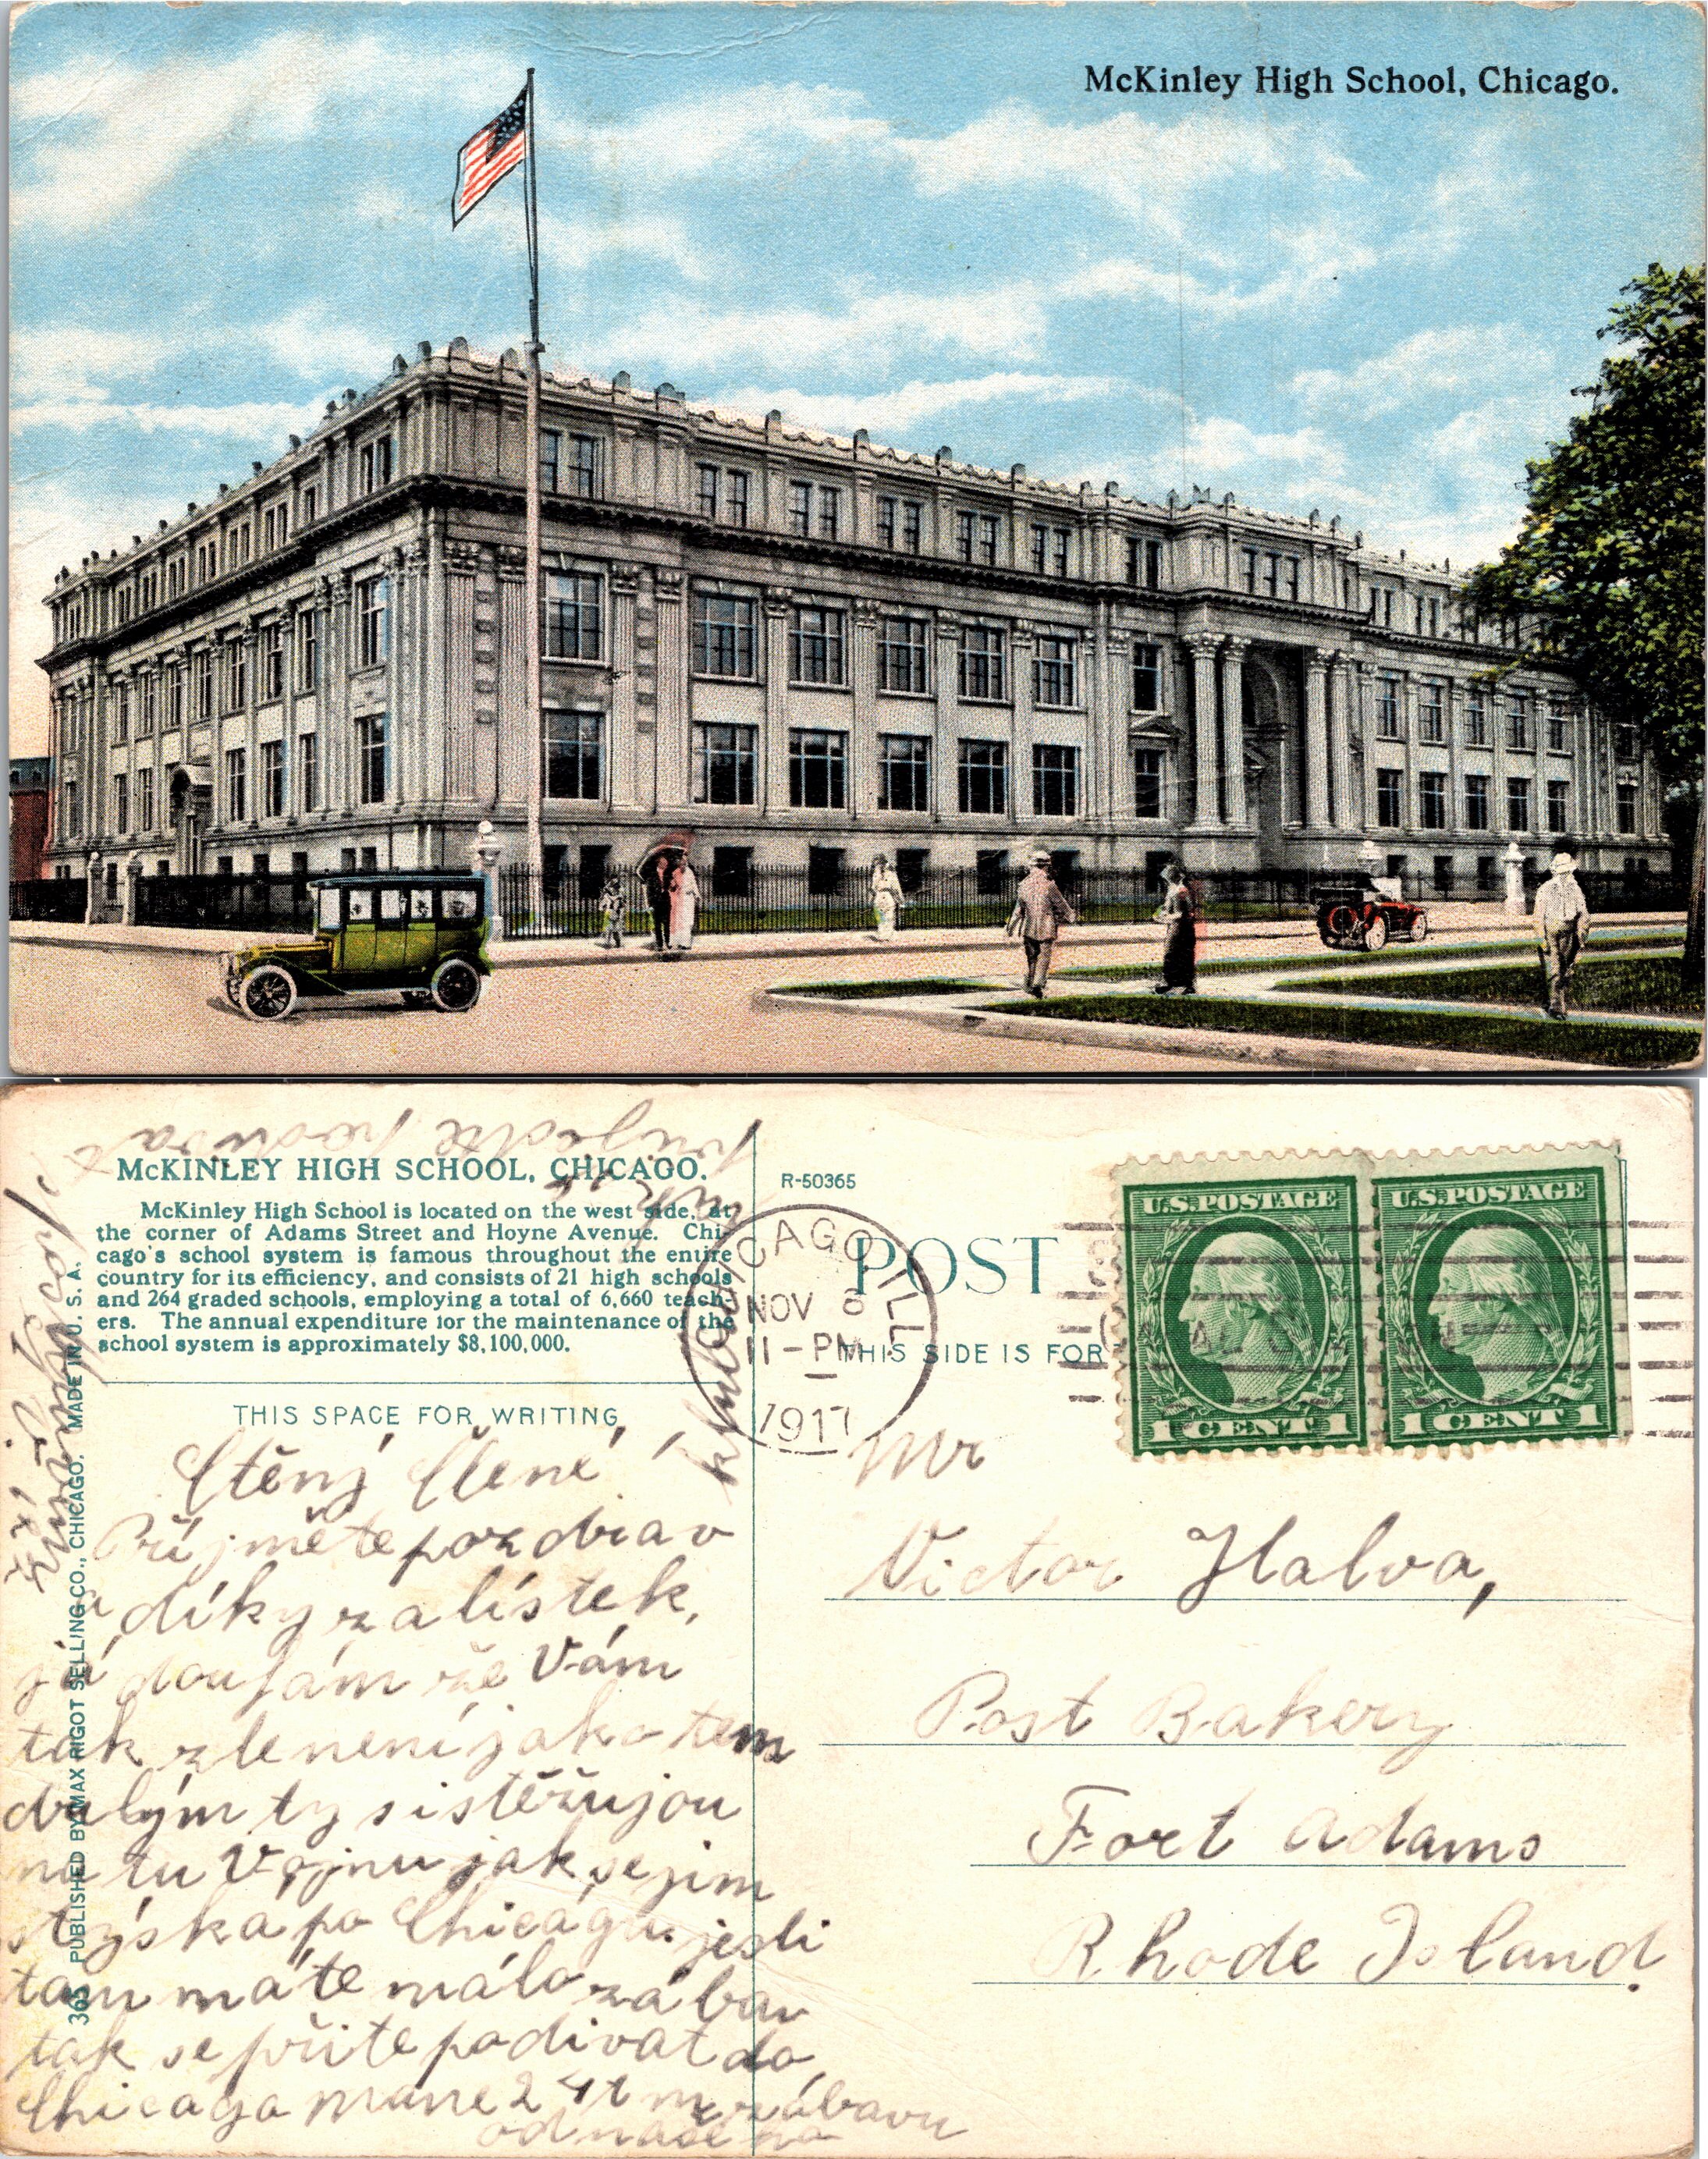 McKinley High School, Chicago.
McKINLEY HIGH SCHOOL, CHICAGO.
McKinley High School is located on the west side, at
the corner of Adams Street and Hoyne Avenue. Chi-
cago's school system is famous throughout the entire
country for its efficiency, and consists of 21 high schools
and 264 graded schools, employing a total of 6,660 teach-
ers. The annual expenditure for the maintenance of the
school system is approximately $8,100,000.
THIS SPACE FOR WRITING
Ctěný Člene
Příjměte pozdrav
a díky za lístek,
já doufám že Vám
tak zle není jako tem
druhým ty si stěžujou
na tu Vojnu jak se jim
stýska po Chicagu. jesli
tam máte málo zábav
tak se přite podivat do
Chicaga mame 24t m zábavu
od naše ho
klubu
přijedte
365 PUBLISHED BY MAX RIGOT SELLING CO., CHICAGO. MADE IN U. S. A.
R-50365
POST
THIS SIDE IS FOR
CHICAGO ILL
NOV 6
11-PM
1917
U.S. POSTAGE
1 CENT 1
U.S. POSTAGE
1 CENT 1
Mr
Victor Halva,
Post Bakery
Fort Adams
Rhode Island.